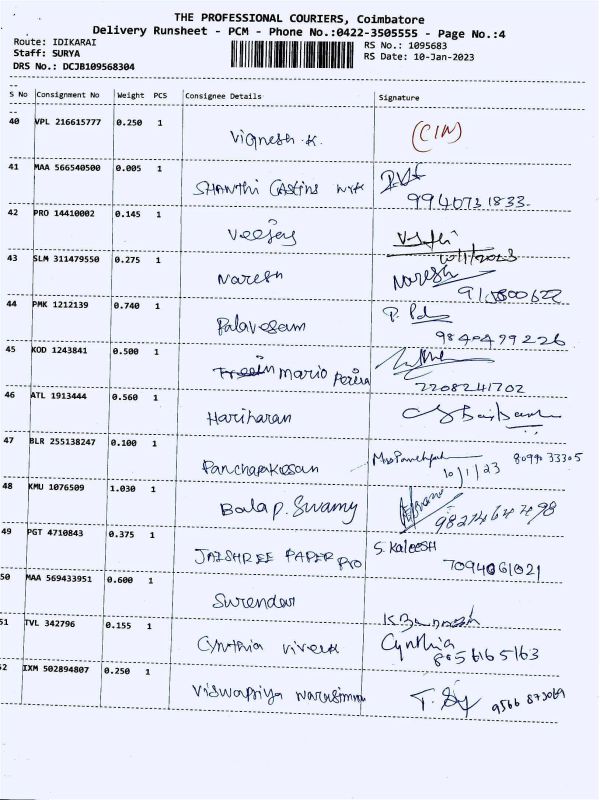 THE PROFESSIONAL COURIERS, Coimbatore
Delivery Runsheet - PCM - Phone No.:0422-3505555 - Page No.:4
Route: IDIKARAI RS No.: 1095683
Staff: SURYA RS Date: 10-Jan-2023
DRS No.: DCJB109568304
S No Consignment No Weight PCS Consignee Details Signature
40 VPL 216615777 0.250 1 Vignesh.K. (CIN)
41 MAA 566540500 0.005 1 SHANTHI CASTING WRK
9940731833
42 PRO 14410002 0.145 1 Veejay
10/1/2023
43 SLM 311479550 0.275 1 Naresh Naresh
44 PMK 1212139 0.740 1 Palavesam
9840499226
45 KOD 1243841 0.500 1 Mario Perira
7208241702
46 ATL 1913444 0.560 1 Hariharan
47 BLR 255138247 0.100 1 Panchapakesan
10/1/23
48 KMU 1076509 1.030 1 Bala P. Swamy
49 PGT 4710843 0.375 1 JAISHREE PAPER PRO S. KALEESH
7094061021
50 MAA 569433951 0.600 1 Surendar
51 TVL 342796 0.155 1 Cynthia Vivek Cynthia
8056165163
52 IXM 502894807 0.250 1 Viswapriya